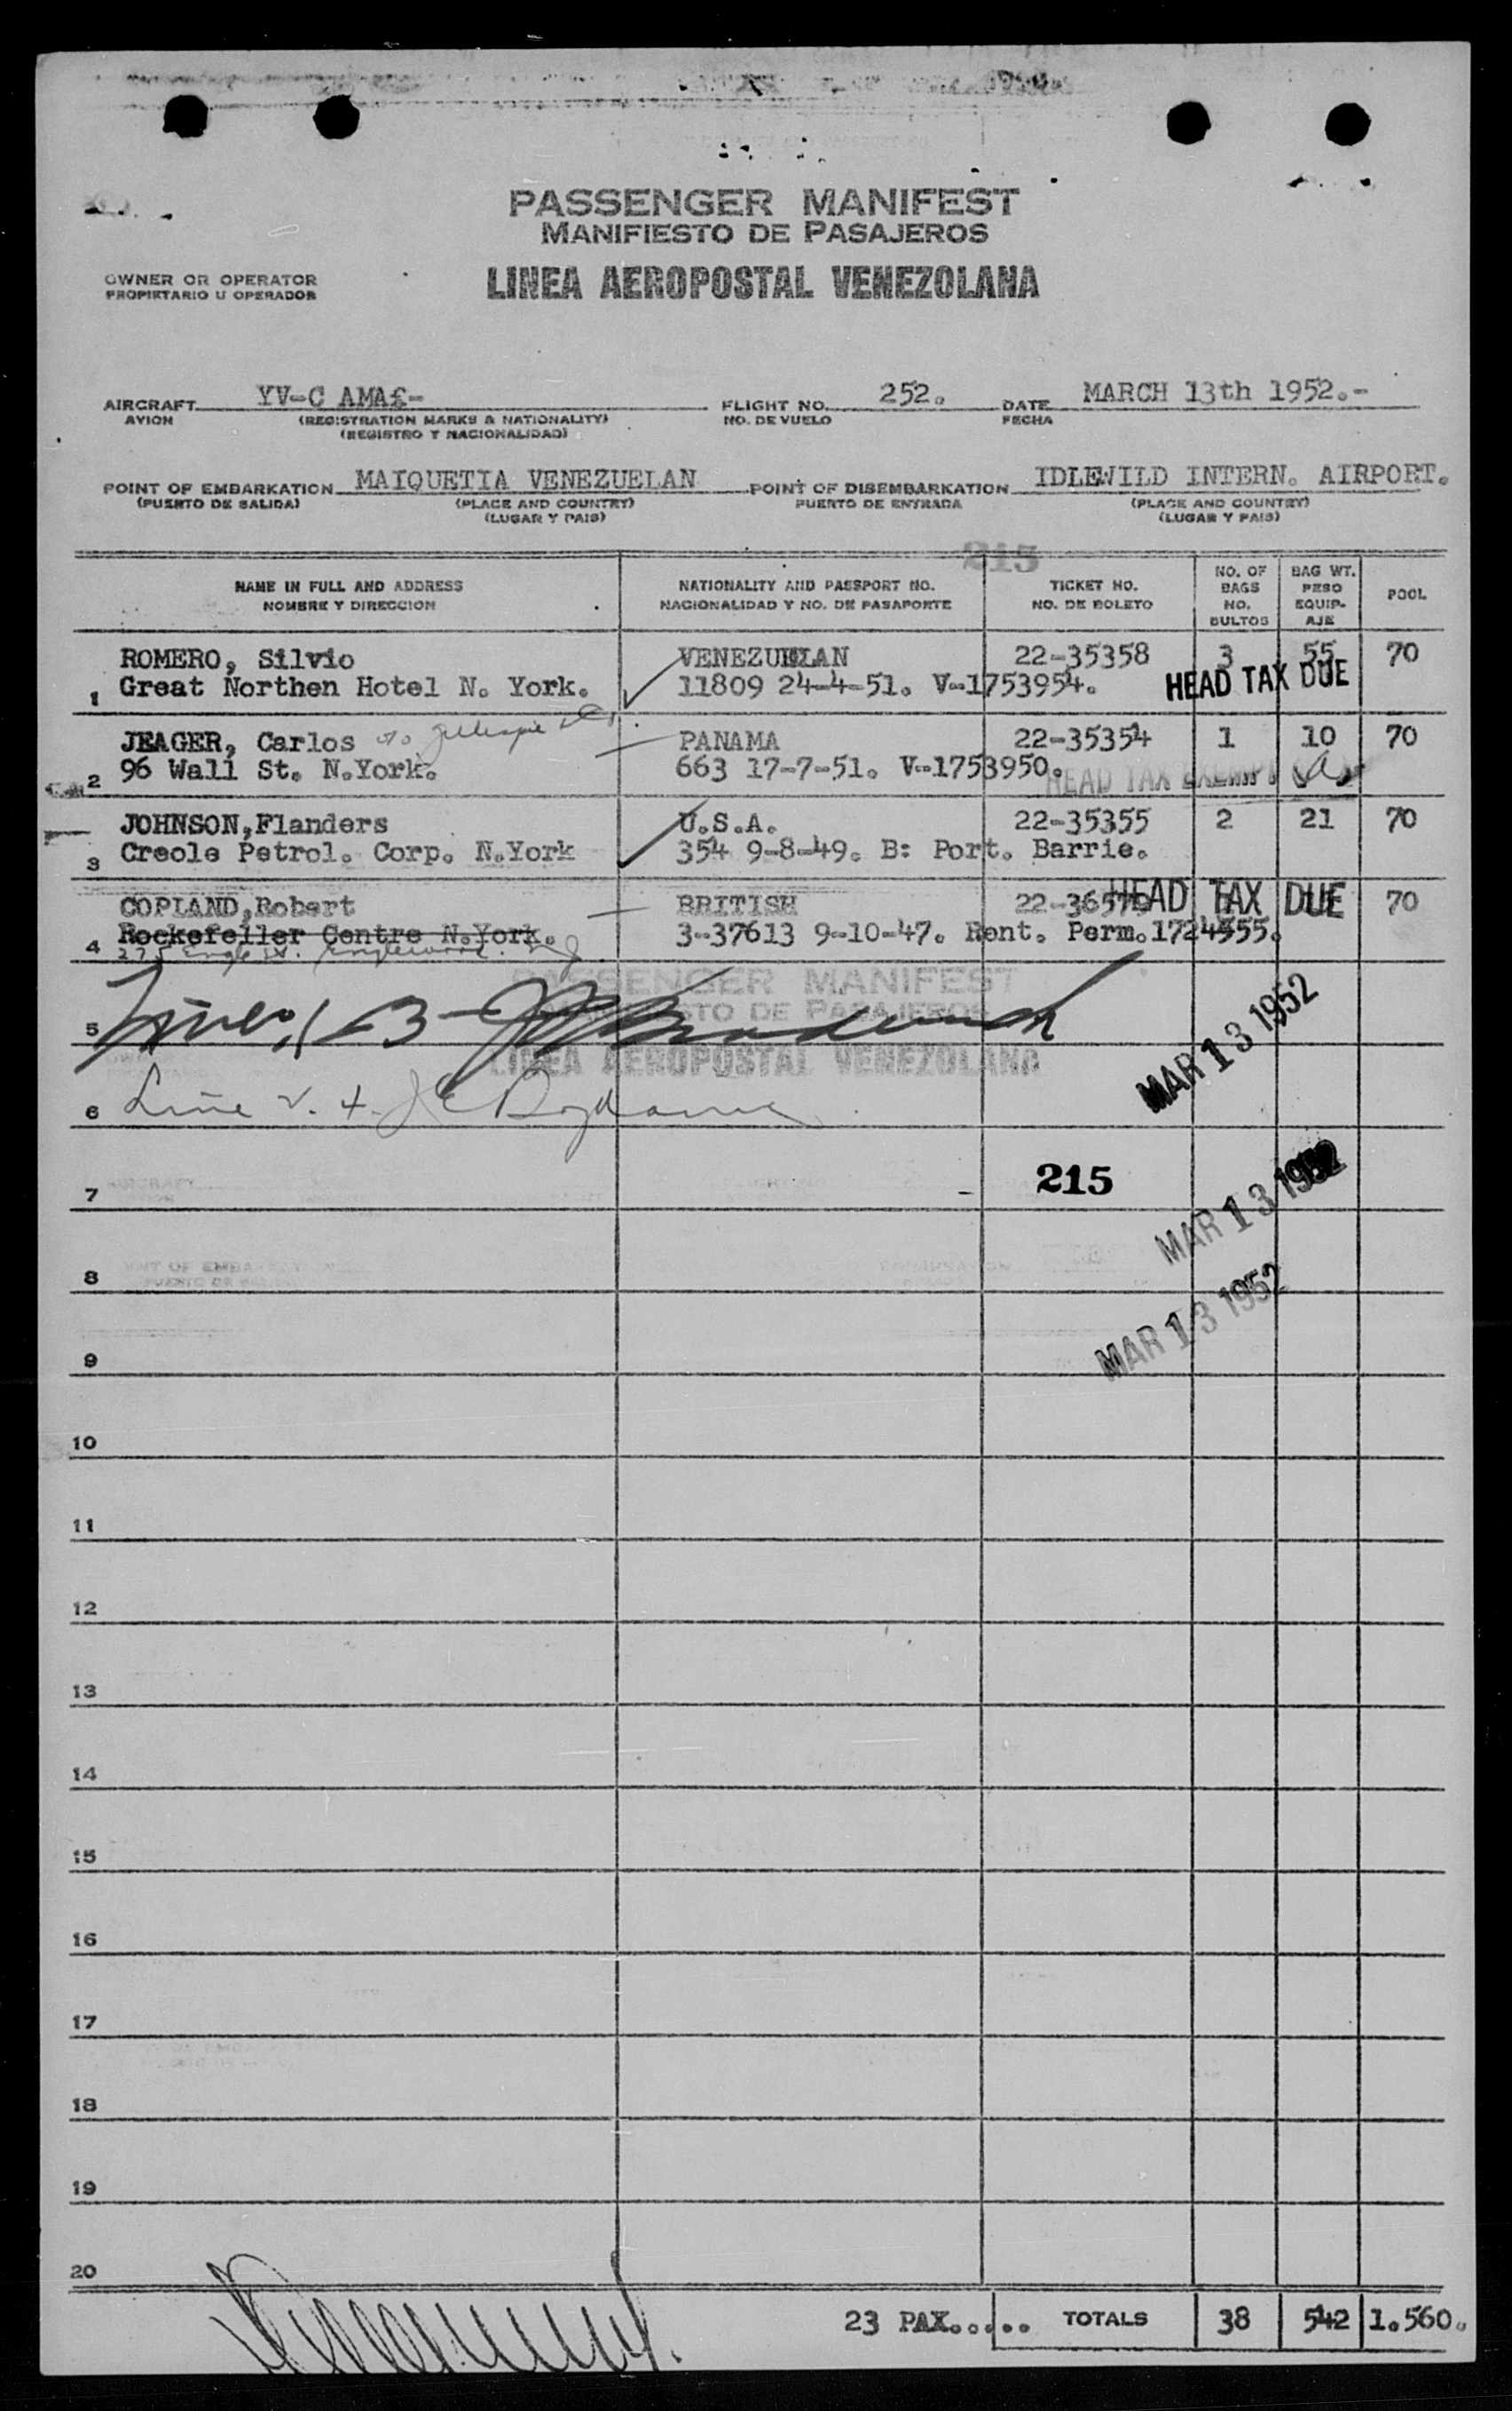 PASSENGER MANIFEST
MANIFIESTO DE PASAJEROS
OWNER OR OPERATOR
PROPIETARIO U OPERADOR
LINEA AEROPOSTAL VENEZOLANA
AIRCRAFT YV-C AMA£- FLIGHT NO. 252. DATE MARCH 13th 1952.-
AVION (REGISTRATION MARKS & NATIONALITY) NO. DE VUELO FECHA
(REGISTRO Y NACIONALIDAD)
POINT OF EMBARKATION MAIQUETIA VENEZUELAN POINT OF DISEMBARKATION IDLEWILD INTERN. AIRPORT.
(PUERTO DE SALIDA) (PLACE AND COUNTRY) PUERTO DE ENTRADA (PLACE AND COUNTRY)
(LUGAR Y PAIS) (LUGAR Y PAIS)
215
NAME IN FULL AND ADDRESS NATIONALITY AND PASSPORT NO. TICKET NO. NO. OF BAGS BAG WT. POOL
NOMBRE Y DIRECCION NACIONALIDAD Y NO. DE PASAPORTE NO. DE BOLETO NO. BULTOS PESO EQUIP-AJE
ROMERO, Silvio VENEZUELAN 22-35358 3 55 70
1 Great Northen Hotel N. York. 11809 24-4-51. V-1753954. HEAD TAX DUE
JEAGER, Carlos c/o Gillespie PANAMA 22-35354 1 10 70
2 96 Wall St. N.York. 663 17-7-51. V-1753950. HEAD TAX EXEMPT
JOHNSON,Flanders U.S.A. 22-35355 2 21 70
3 Creole Petrol. Corp. N.York 354 9-8-49. B: Port. Barrie.
COPLAND,Robert BRITISH 22-365 HEAD TAX DUE 70
4 Rockefeller Centre N.York. 3-37613 9-10-47. Rent. Perm.1724555.
275 Engle St. Englewood. NJ
PASSENGER MANIFEST
MANIFIESTO DE PASAJEROS
5
LINEA AEROPOSTAL VENEZOLANA
MAR 13 1952
6 Line
7 215
MAR 13 1952
8
MAR 13 1952
9
10
11
12
13
14
15
16
17
18
19
20
23 PAX..... TOTALS 38 542 1.560.